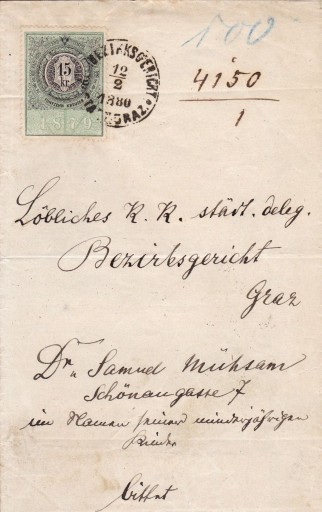 100
15
Kr.
1879
BEZIRKSGERICHT
12
2
1880
GRAZ
4150
1
Löbliches K. K. städt. deleg.
Bezirksgericht
Graz
Dr. Samuel Mühsam
Schönaugasse 7
im Namen seiner minderjährigen
Kinder
bittet